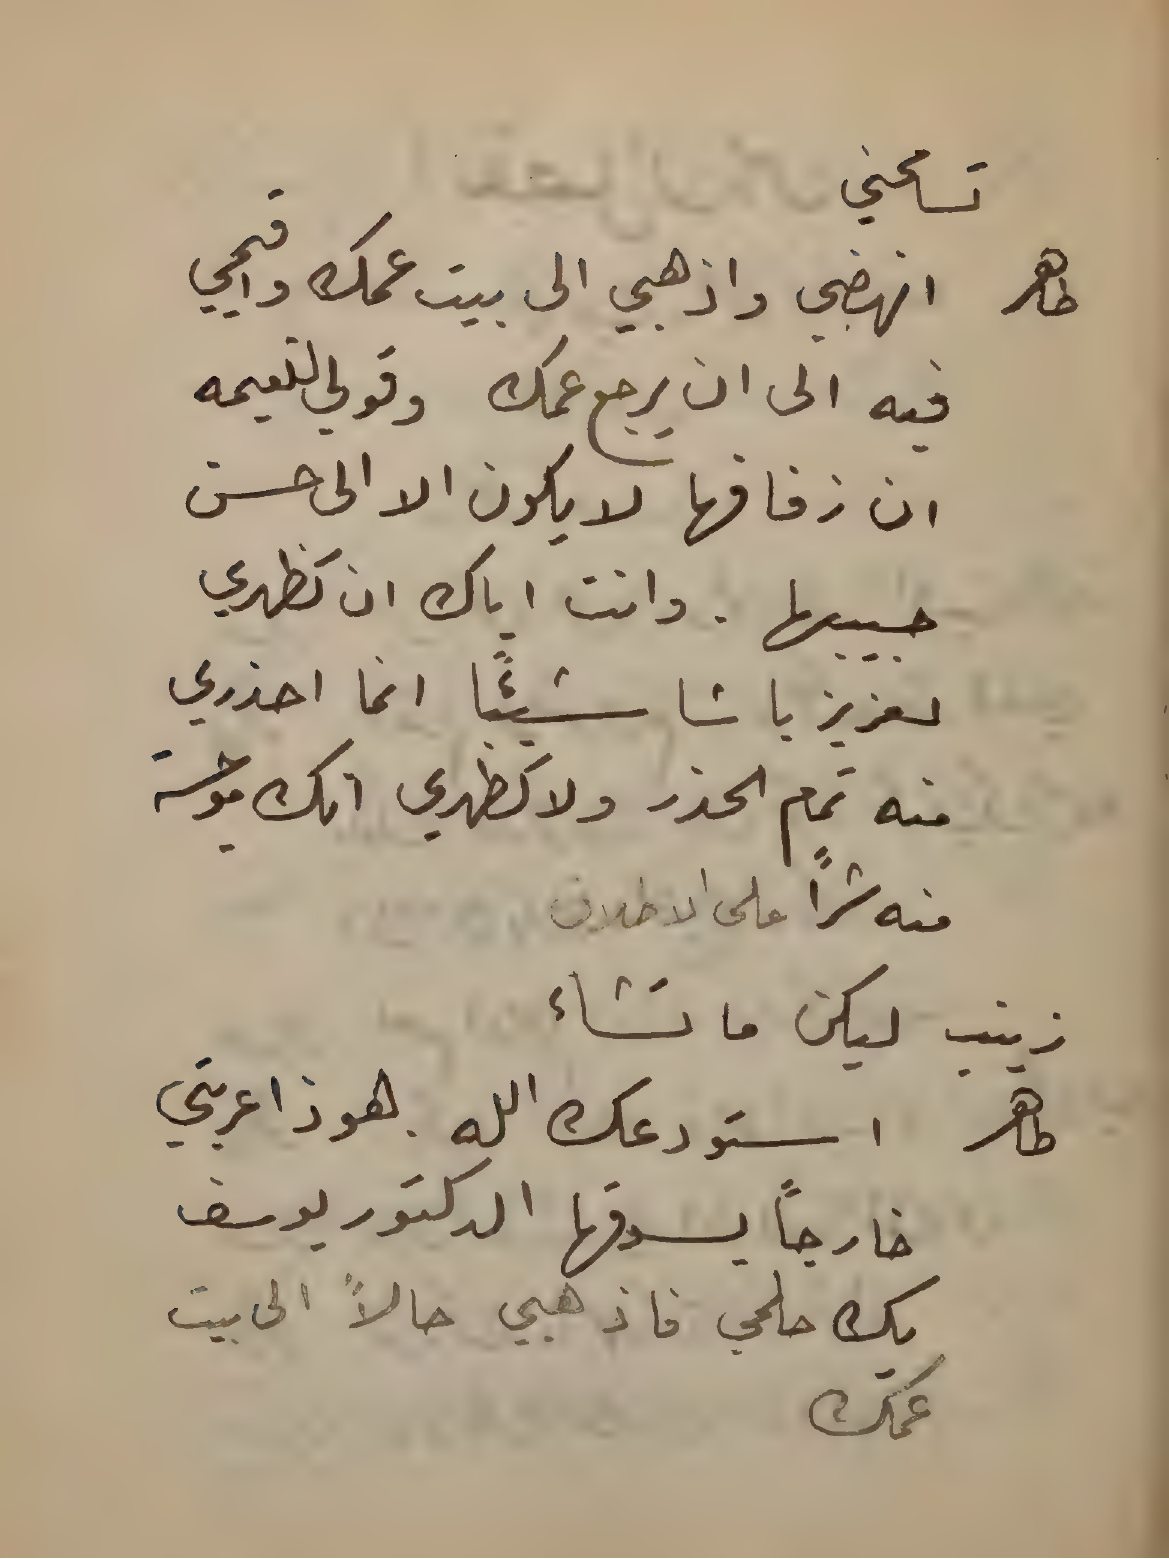 تسامحني
طاهر انهضي واذهبي الى بيت عمك واقيمي
فيه الى ان يرجع عمك وقولي لنعيمه
ان زفافها لا يكون الا الى حسن
حبيبها . وانت اياك ان تظهري
لعزيز باشا شيئًا انما احذري
منه تمام الحذر ولا تظهري انك موجسة
منه شرًا على الاطلاق
زينب ليكن ما تشاء
طاهر استودعك الله . هوذا عربتي
خارجًا يسوقها الدكتور يوسف
بك حلمي فاذهبي حالاً الى بيت
عمك